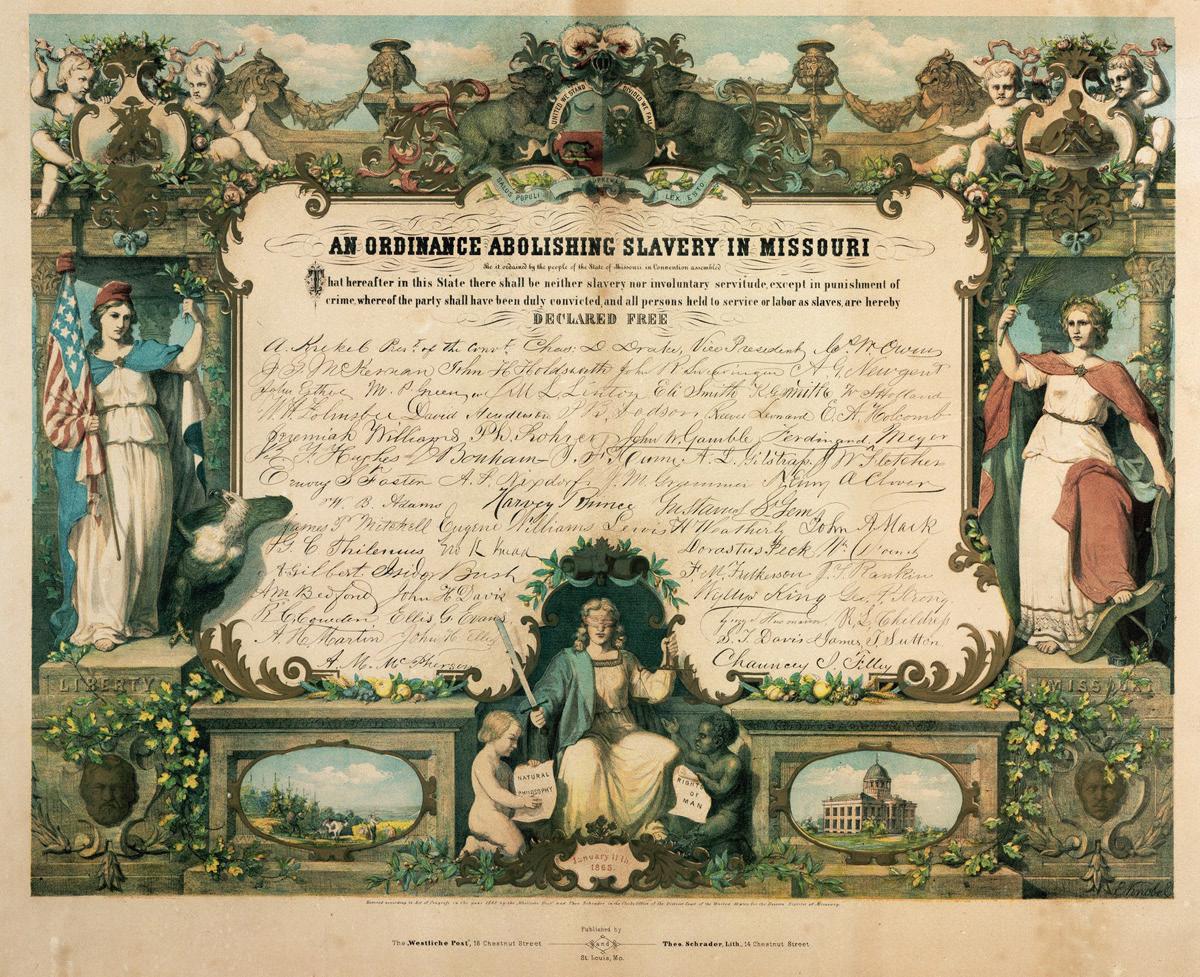 UNITED WE STAND DIVIDED WE FALL
SALUS POPULI LEX ESTO
AN ORDINANCE ABOLISHING SLAVERY IN MISSOURI
Be it ordained by the people of the State of Missouri in Convention assembled
That hereafter in this State there shall be neither slavery nor involuntary servitude, except in punishment of
crime, whereof the party shall have been duly convicted, and all persons held to service or labor as slaves, are hereby
DECLARED FREE
A. Krekel Pres.t of the Conv.t Chas. D Drake, Vice President W. Owens
McKernan John H Holdsworth A G Newgent
John Esther M. P. Green M L Linton Eli Smith K G Smith
David Henderson Dodson Leonard C. A. Holcomb
Jeremiah Williams Ph. Rohrer John W. Gamble, Ferdinand Meyer
Hughes D Bonham J. F. Hume A. L. Gilstrap J W Fletcher
Emory S Foster A. F. Nixdorf J. M. Grammer Henry A Clover
W. B. Adams Harvey Bunce Gustavus St Gem
James P Mitchell Eugene Williams Lewis H Weatherby John A Mack
G. C. Thilenius Dorastus Peck
Gilbert Isidor Bush F. M. Fulkerson J. T. Rankin
A M Bedford John H Davis Wyllys King Geo. P Strong
R. C. Cowden Ellis G. Evans R. L. Childress
A. H. Martin John H. Ellis S. T. Davis James T Sutton
A. M. McPherson Chauncey I. Filley
LIBERTY
MISSOURI
NATURAL
PHILOSOPHY
RIGHTS
OF
MAN
January 11th
1865.
Entered according to Act of Congress in the year 1865 by the "Westliche Post" and Theo Schrader in the Clerks Office of the District Court of the United States for the Eastern District of Missouri.
Published by
The "Westliche Post", 18 Chestnut Street and Theo. Schrader, Lith., 14 Chestnut Street
St. Louis, Mo.